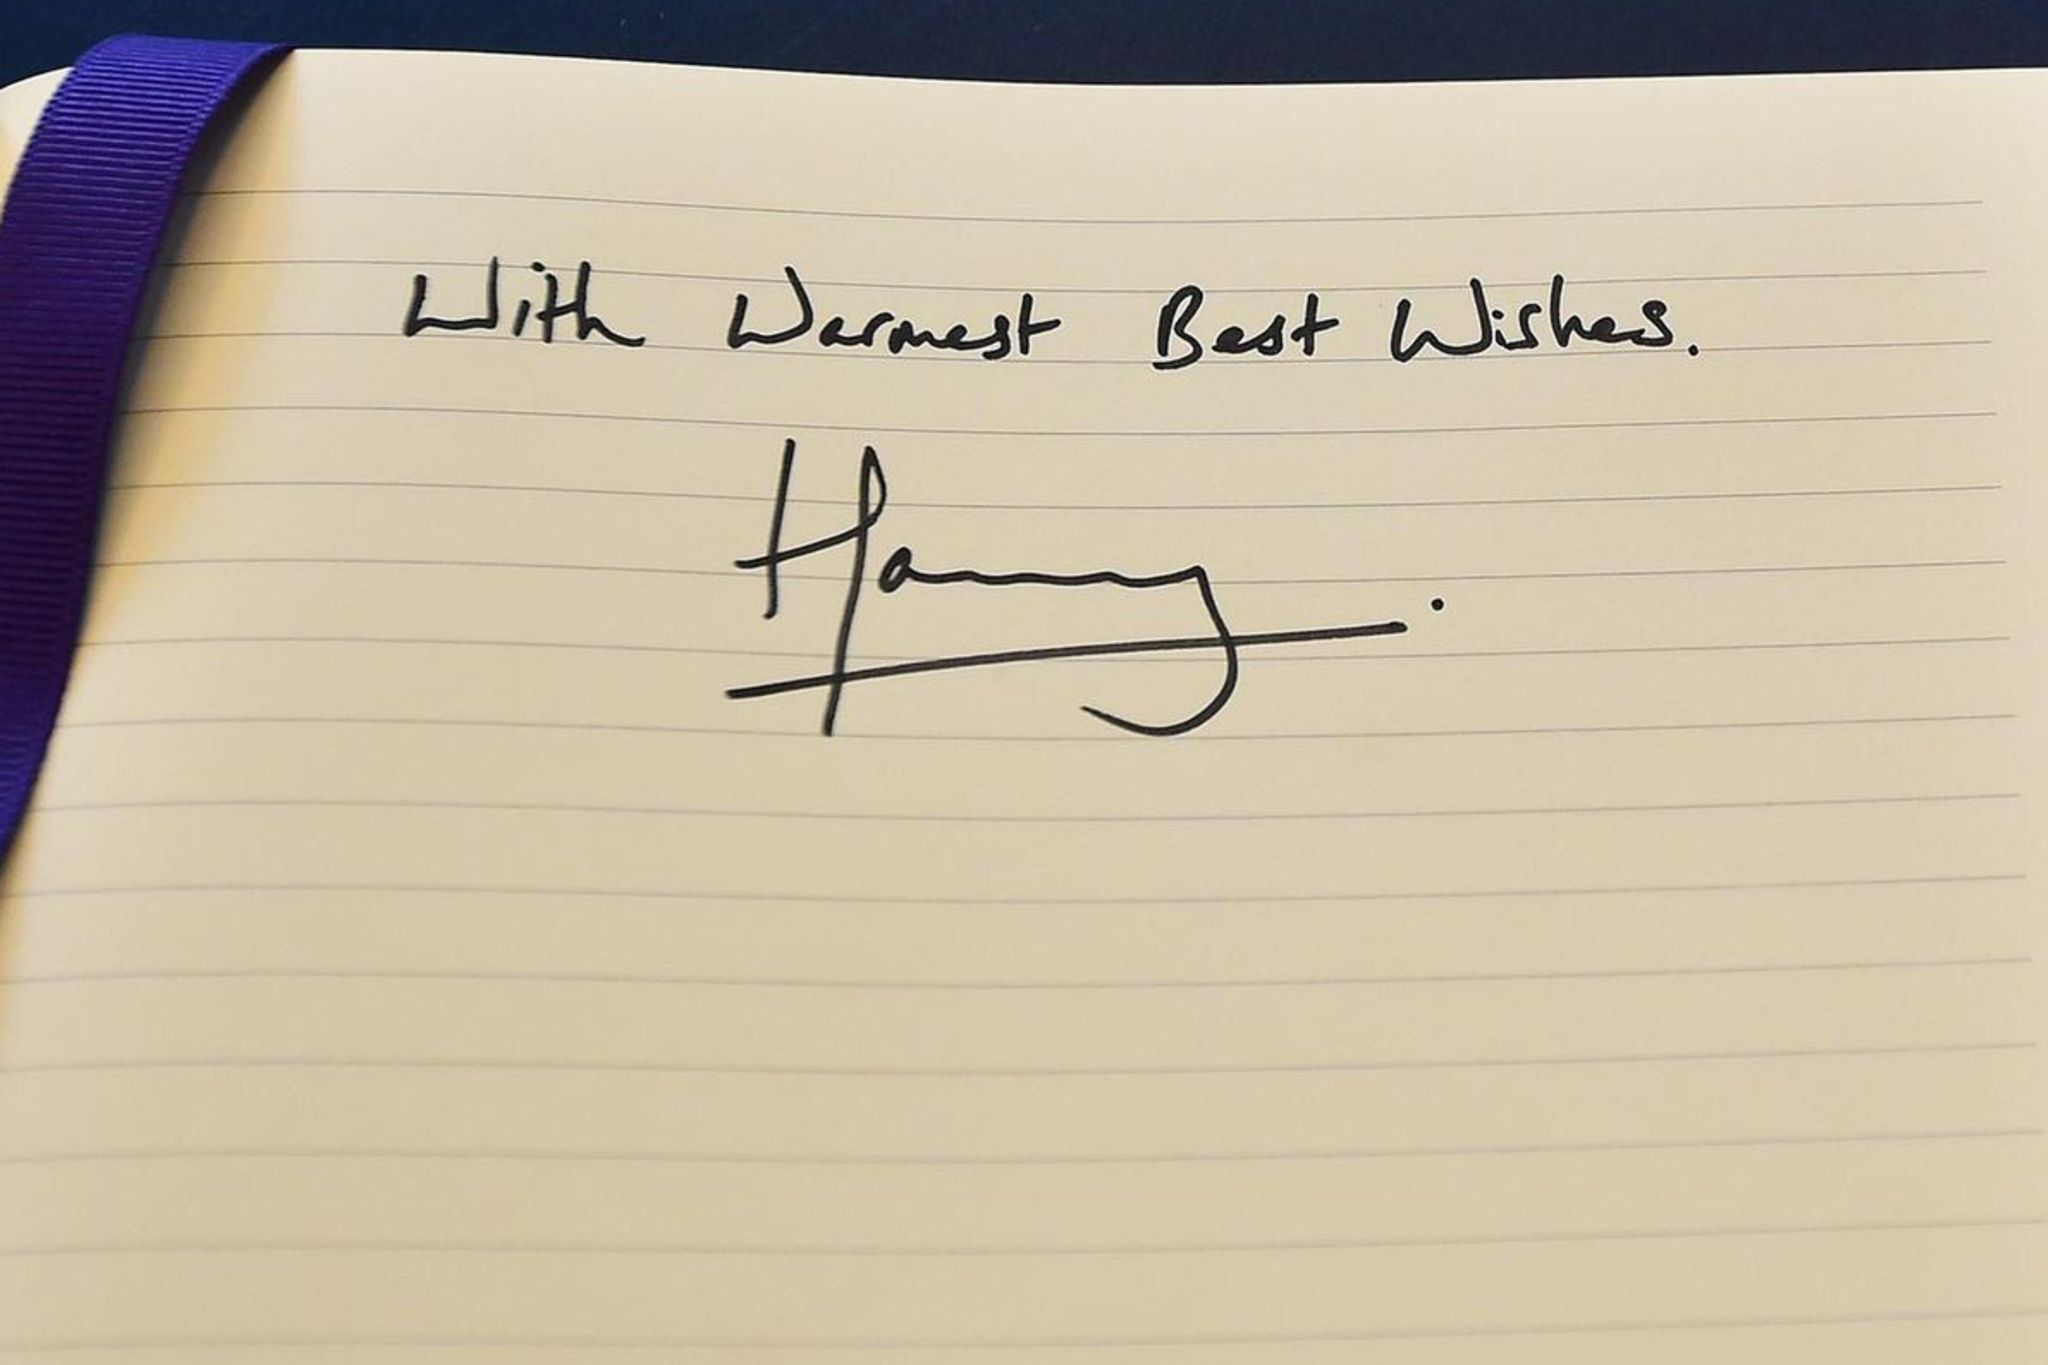 With Warmest Best Wishes.
Harry.